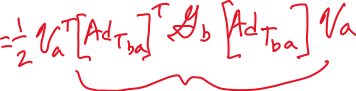 =½ 𝒱ₐᵀ [Ad_{T_{ba}}]ᵀ 𝒢_b [Ad_{T_{ba}}] 𝒱ₐ